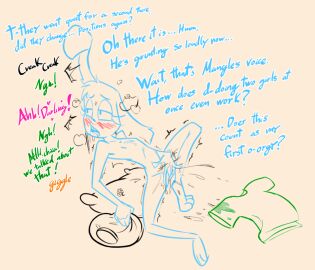 T-they went quiet for a second there
did they change.. Positions again?
Oh there it is... Hmm.
He's grunting so loudly now...
Creak Creak
Ngh!
Wait, that's Mangle's voice.
How does d-doing two girls at
once even work?
Ahh! Darling!
Ngh!
Ahh!
we talked about
that!
giggle
... Does this
count as my
first o-orgy?